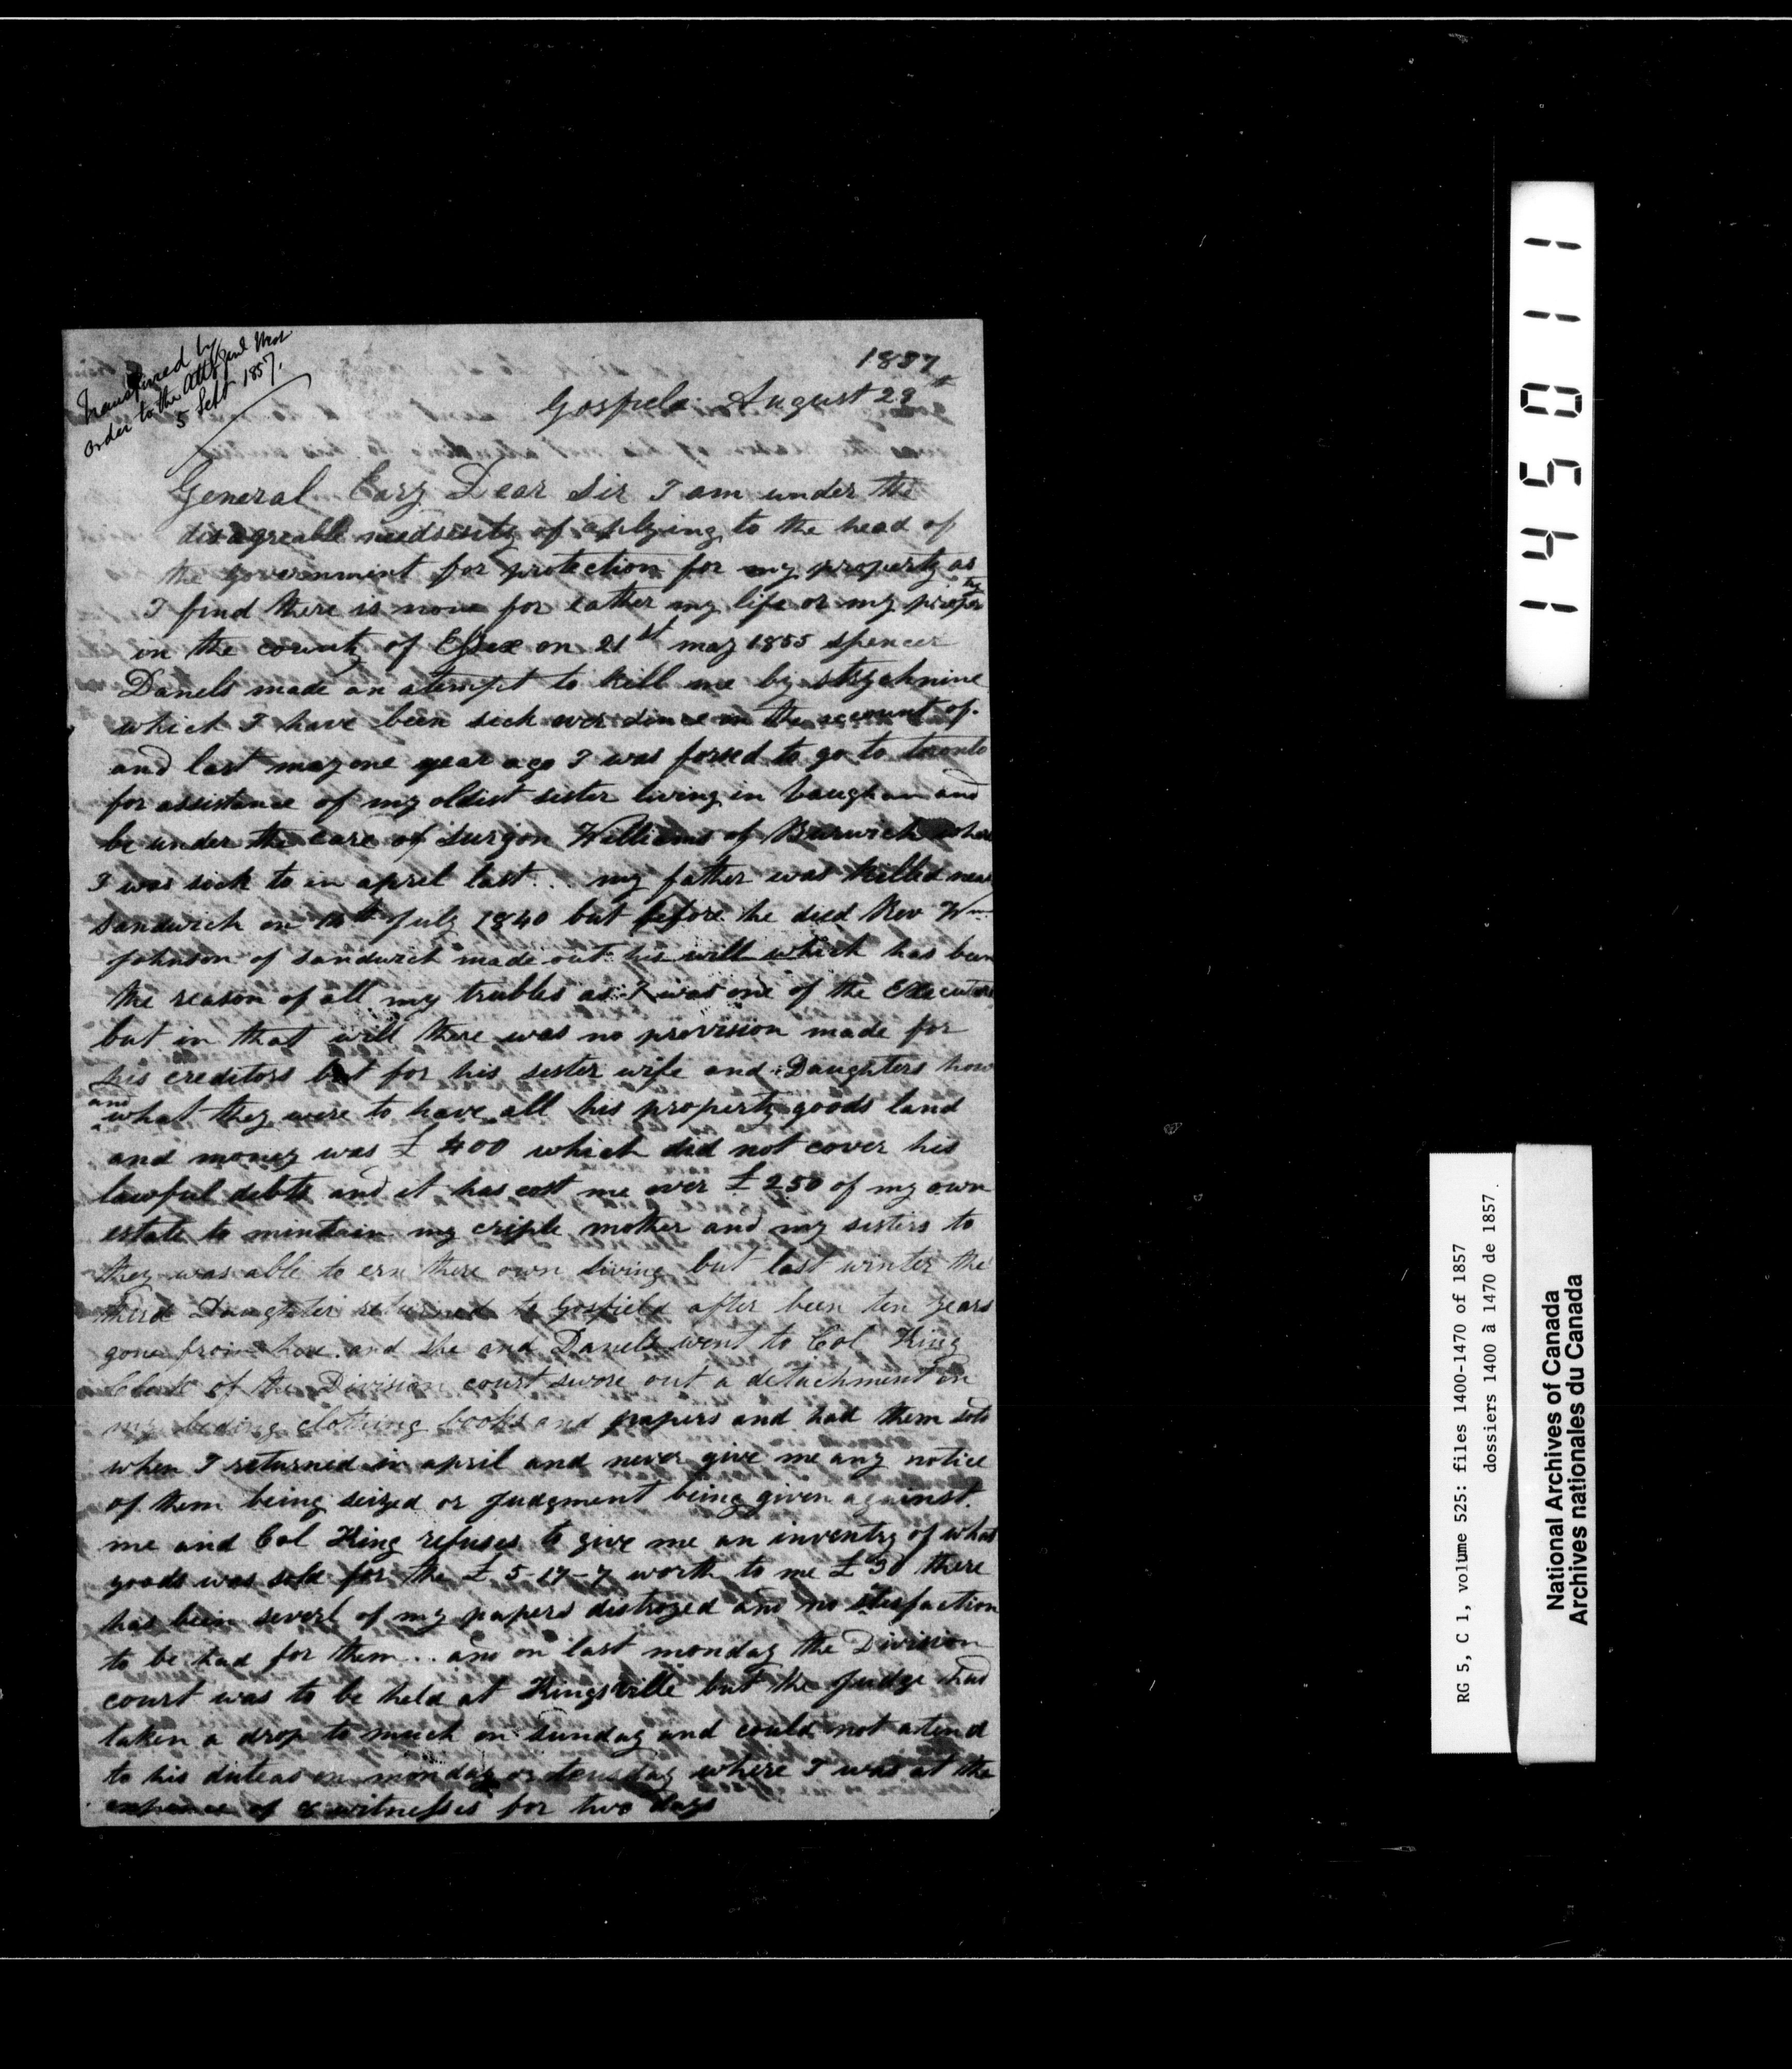 Transferred by
order to the Atty Genl West
5 Sept 1857.
1857
Gosfield August 29th
General Eary Dear Sir I am under the
disagreable needsesity of aplying to the head of
the government for protection for my property as
I find there is none for eather my life or my property
in the county of Essex on 21st may 1855 spencer
Danels made an atempt to kill me by strychnine
which I have been sick ever since on the account of.
and last may one year ago I was forsed to go to toronto
for assistance of my oldest sister living in Vaughan and
be under the care of Surgon Williams of Burwick where
I was sick to in aprel last... my father was killed near
Sandwich on 10th July 1840 but before he died Rev Wm
Johnson of Sandwich made out his will which has been
the reason of all my trubles as I was one of the Executors
but in that will there was no provision made for
his creditors but for his sister wife and Daughters how
and what they were to have all his property goods land
and money was £ 400 which did not cover his
lawful debts and it has cost me over £ 250 of my own
estate to mintain my criple mother and my sisters to
they was able to ern there own living but last winter the
third Daughter returned to Gosfield after been ten years
gone from here. and she and Danels went to Col King
Clerk of the Division court swore out a detachment on
my beding clothing books and papers and had them sold
when I returned in april and never give me any notice
of them being seized or Judgment being given against
me and Col King refuses to give me an inventry of what
goods was sold for the £ 5-17-7 worth to me £ 30 there
has been severl of my papers distroyed and no stesfaction
to be had for them... and on last monday the Division
court was to be held at Kingsville but the Judge had
taken a drop to much on sunday and could not atend
to his duteas on monday or teusday where I was at the
expence of 8 witnesses for two days
145011
RG 5, C 1, volume 525: files 1400-1470 of 1857
dossiers 1400 à 1470 de 1857.
National Archives of Canada
Archives nationales du Canada